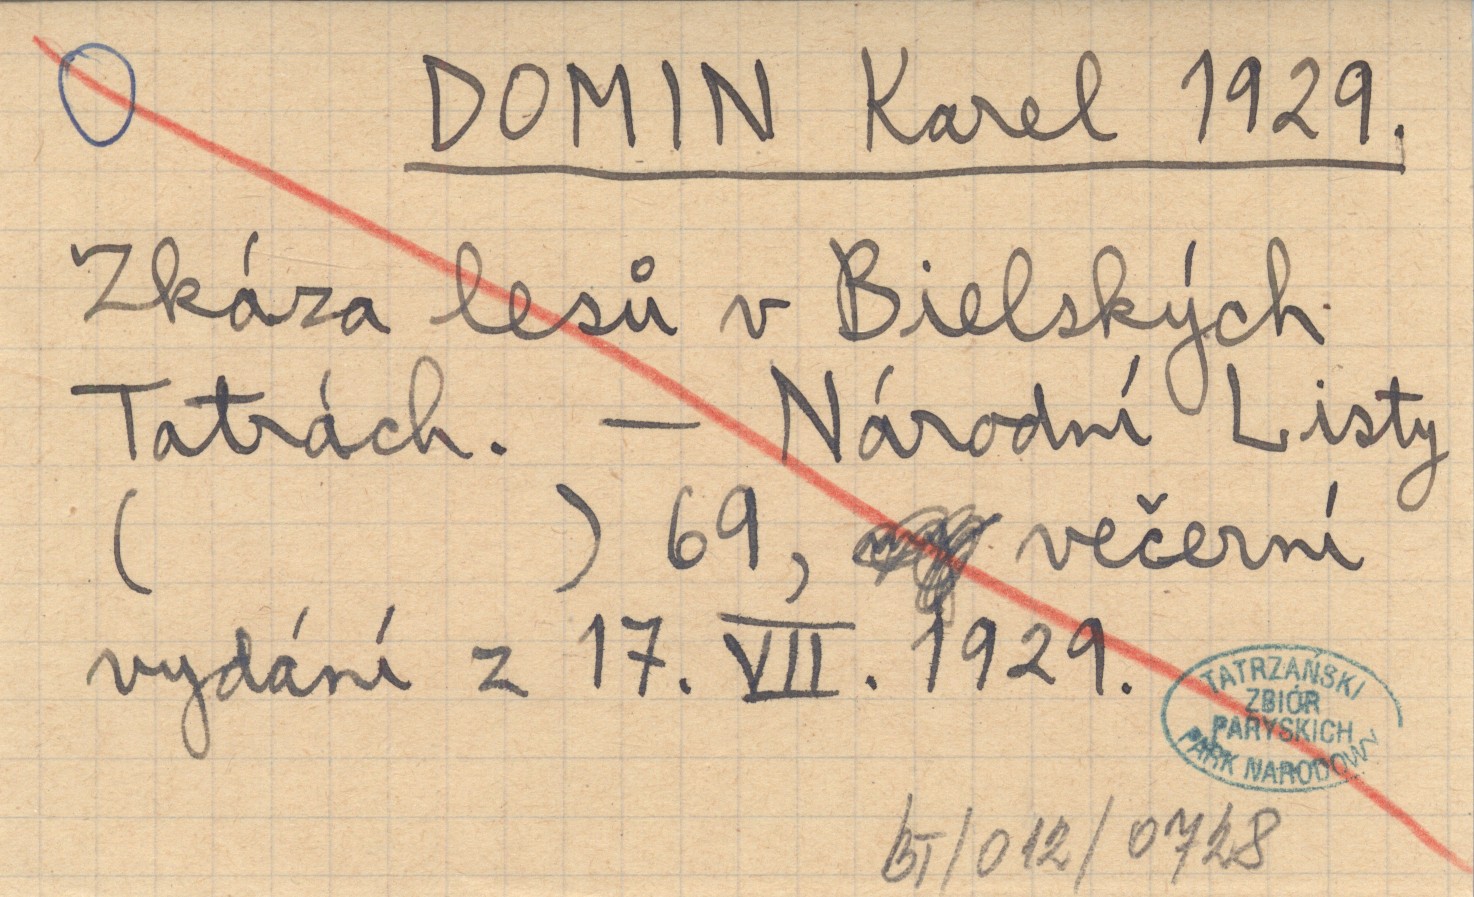 DOMIN Karel 1929.
Zkáza lesů v Bielských
Tatrách. — Národní Listy
( ) 69, večerní
vydání z 17. VII. 1929.
TATRZAŃSKI
ZBIÓR
PARYSKICH
PARK NARODOWY
BT/012/0728